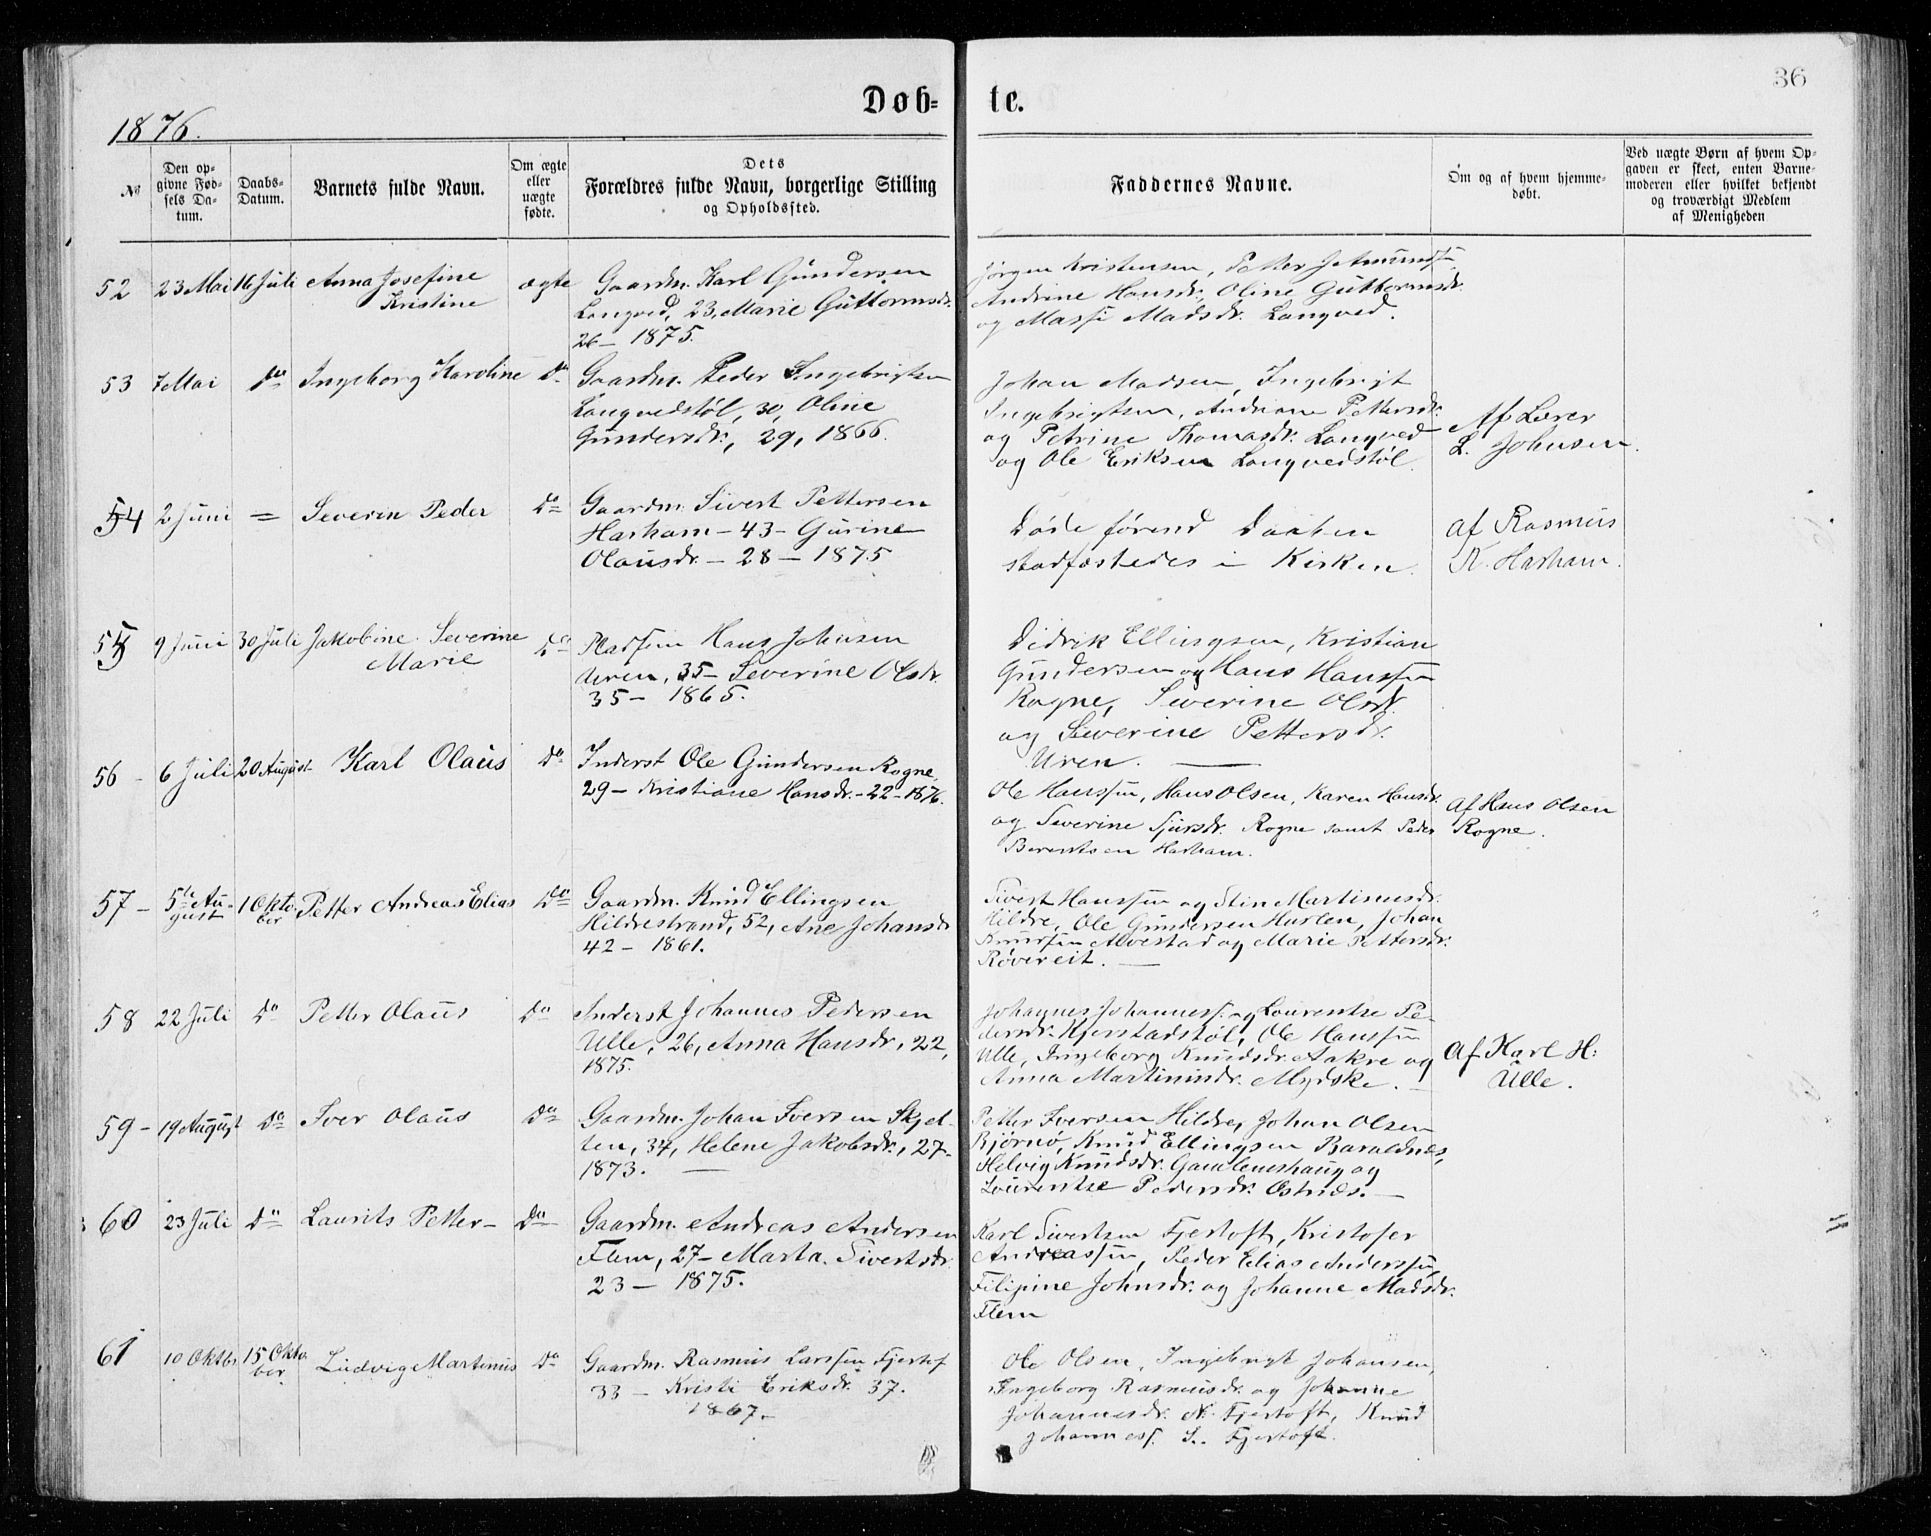 Døb-
te.
36
1876.
No
Den op-
givne Fød-
sels Da-
tum.
Daabs-
Datum.
Barnets fulde Navn.
Om ægte
eller
uægte
fødte.
Dets
Forældres fulde Navn, borgerlige Stilling
og Opholdssted.
Faddernes Navne.
Om og af hvem hjemme-
døbt.
Ved uægte Børn af hvem Op-
gaven er skeet, enten Barne-
moderen eller hvilket bekjendt
og troværdigt Medlem
af Menigheden
52 23 Mai 16 Juli Anna Josefine
Kristine
ægte
Gaardm. Karl Gundersen
Longved, 23, Marie Guttormsdr.
26 – 1875.
Jørgen Kristensen, Petter
Andrine Hansdr., Oline Guttormsdr.
og Massi Madsdr. Longved.
53 7 Mai do Ingeborg Karoline do
Gaardm. Peder Ingebrigtsen
Longvedstøl, 30, Oline
Gundersdr., 29, 1866.
Johan Madsen, Ingebrigt
Ingebrigtsen, Andriane Pettersdr.
og Petrine Thomasdr. Longved
og Ole Eriksen Longvedstøl.
Af Lærer
L. Johnsen.
54 2 Juni = Severin Peder do
Gaardm. Sivert Pettersen
Harham – 43 – Gurine
Olausdr. – 28 – 1875
Døde førend Daaben
stadfæstedes i Kirken.
af Rasmus
K. Harham.
55 9 Juni 30 Juli Jakobine Severine
Marie
do
Pladsm Hans Johnsen
Uren, 35 – Severine Olsdr.
35 – 1865.
Didrik Ellingsen, Kristian
Gundersen og Hans Hanssen
Rogne, Severine Olsdr.
og Severine Pettersdr.
Uren.
56 – 6 Juli 20 August Karl Olaus do
Inderst Ole Gundersen Rogne,
29 – Kristiane Hansdr. – 22 – 1876.
Ole Hanssen, Hans Olsen, Karen Hansdr.
og Severine Sjursdr. Rogne samt Peder
Berentsen Harham.
Af Hans Olsen
Rogne.
57 – 5te Au-
gust
1 Okto-
ber
Petter Andreas Elias do
Gaardm. Knud Ellingsen
Hildrestrand, 52, Ane Johansdr.
42 – 1861.
Sivert Hanssen og Stin Martinusdr.
Hildre, Ole Gundersen Huslen, Johan
Knudsen Alvestad og Marie Pettersdr.
Røvereit.
58 22 Juli do Petter Olaus do
Inderst Johannes Pedersen
Ulle, 26, Anna Hansdr., 22,
1875.
Johannes Johanness. og Lourentse Pe-
dersdr. Kjerstadstøl, Ole Hanssen
Ulle, Ingeborg Knudsdr. Aakre og
Anna Martinusdr. Mydske.
Af Karl H:
Ulle.
59 – 19 August do Iver Olaus do
Gaardm. Johan Iversen Skjel-
ten, 34, Helene Jakobsdr., 27 –
1873.
Petter Iversen Hildre, Johan Olsen
Bjørnø, Knud Ellingsen Baraldnes,
Helvig Knudsdr. Gamlemshaug og
Lourentse Pedersdr. Østnæs.
60 23 Juli do Laurits Petter – do
Gaardm. Andreas Andersen
Flem, 27 – Marta Sivertsdr.
23 – 1875.
Karl Sivertsen Fjertoft, Kristofer
Andreassen, Peder Elias Anderssen,
Filipine Johnsdr. og Johanne Madsdr.
Flem
61 10 Oktbr. 15 Okto-
ber
Ludvig Martinus do
Gaardm. Rasmus Larssen Fjertof
33 – Kristi Eriksdr. 37.
1867.
Ole Olsen, Ingebrigt Johansen,
Ingeborg Rasmusdr. og Johanne
Johannesdr. N. Fjertoft, Knud
Johanness. S. Fjertoft.